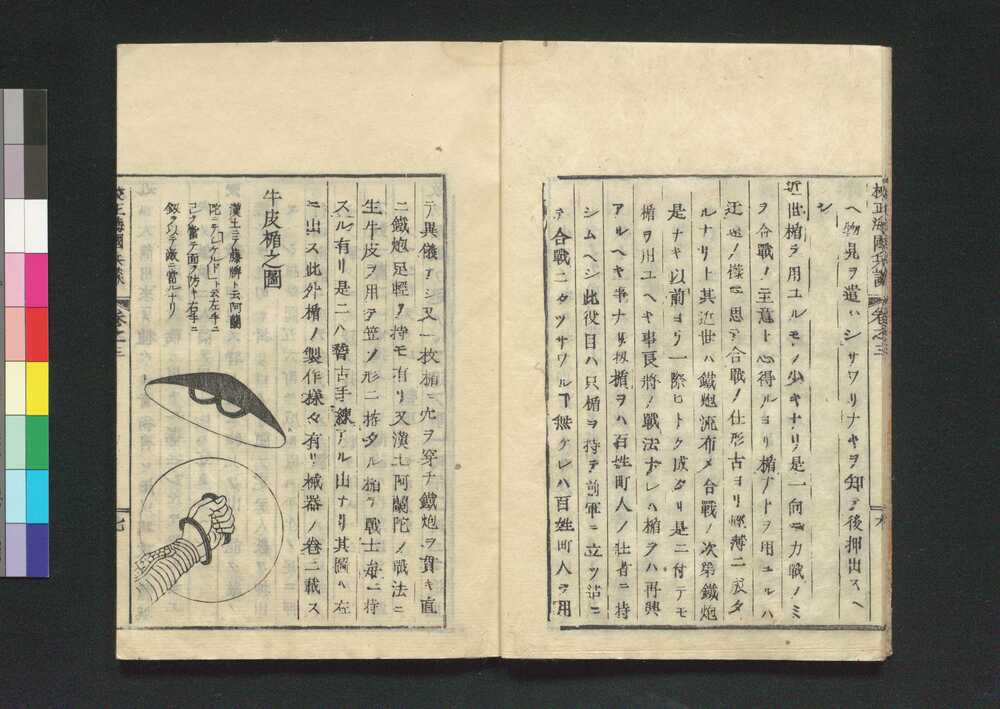 校正海國兵談 卷之三
ヘ物見ヲ遣ハシサワリナキヲ知テ後押出スヘ
シ
近世楯ヲ用ユルモノ少キナリ是一向ニ力戰ノミ
ヲ合戰ノ主意ト心得ルヨリ楯ナトヲ用ユルハ
迂遠ノ様ニ思テ合戰ノ仕形古ヨリ輕薄ニ成タ
ルナリト其近世ハ鐵炮流布メ合戰ノ次第鐵炮
是ナキ以前ヨリ一際ヒトク成タリ是ニ付テモ
楯ヲ用ユヘキ事長將ノ戰法ナレハ楯ヲハ再興
アルヘキ事ナリ扨楯ヲハ百姓町人ノ壮者ニ持
シムヘシ此役目ハ只楯ヲ持テ前軍ニ立ツ迠ニ
テ合戰ニタツサワルヿ無クレハ百姓町人ヲ用
テ異儀ナシ又一枚楯ニ穴ヲ穿ナ鐵炮ヲ貫キ直
ニ鐵炮足輕ノ持モ有リ又漢土阿蘭陀ノ戰法ニ
生牛皮ヲ用テ笠ノ形ニ拵タル楯ヲ戰士毎ニ持
スル有リ是ニハ稽古手練アル山ナリ其圖ハ左
ニ出ス此外楯ノ製作様々有リ械器ノ卷ニ載ス
牛皮楯之圖
漢土ニテ藤牌ト云阿蘭
陀ニテシケルドト云左手ニ
コレヲ當テ面ヲ防キ右手ニ
釼ヲ以テ敵ニ當ルナリ
校正海國兵談 卷之三 七